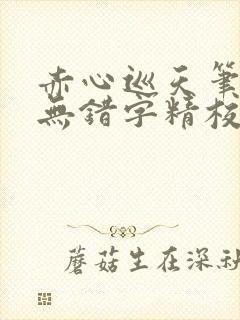 赤心巡天筆
無錯字精校
蘑菇生在深